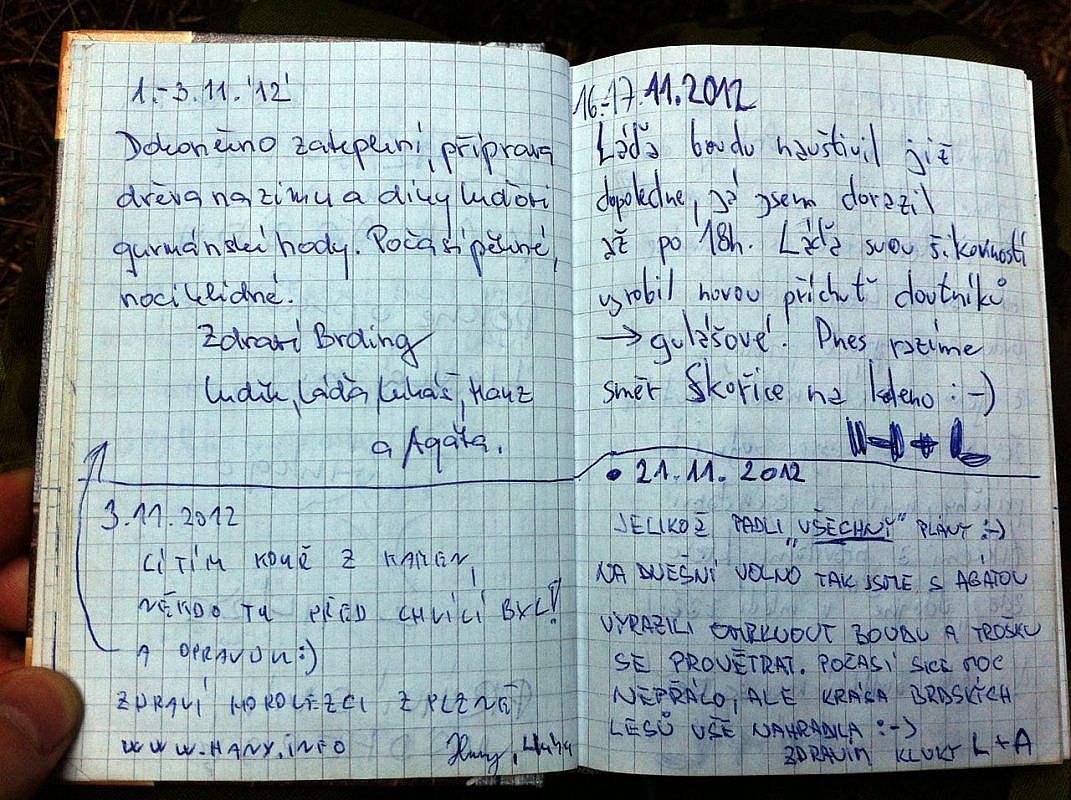 1.-3.11.'12'
Dokončeno zateplení, příprava
dřeva na zimu a díky Luďkovi
gurmánské hody. Počasí pěkné,
noci klidné.
Zdraví Brding
Luděk, Láďa, Lukáš, Hanz
a Agáta.
3.11.2012
CÍTÍM KOUŘ Z KAMEN,
NĚKDO TU PŘED CHVÍLÍ BYL!
A OPRAVDU :)
ZDRAVÍ HOROLEZCI Z PLZNĚ
WWW.HANY.INFO
16.-17.11.2012
Láďa boudu navštívil již
dopoledne, já jsem dorazil
až po 18h. Láďa svou šikovností
vyrobil novou příchuť doutníků
→ gulášové! Dnes razíme
směr Skořice na ledeno :-)
H + L
• 21.11. 2012
JELIKOŽ PADLI „VŠECHNY" PLÁNY :-)
NA DNEŠNÍ VOLNO TAK JSME S AGÁTOU
VYRAZILI OMRKNOUT BOUDU A TROŠKU
SE PROVĚTRAT. POČASÍ SICE MOC
NEPŘÁLO, ALE KRÁSA BRDSKÝCH
LESŮ VŠE NAHRADILA :-)
ZDRAVÍM KLUKY L + A